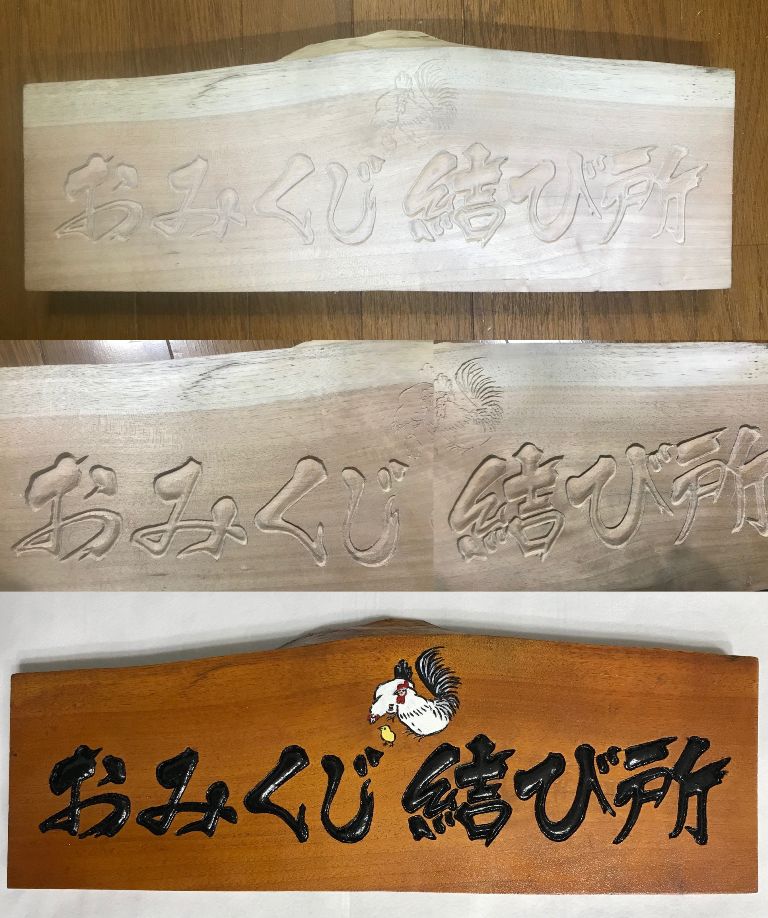 おみくじ 結び所
おみくじ
結び所
おみくじ 結び所